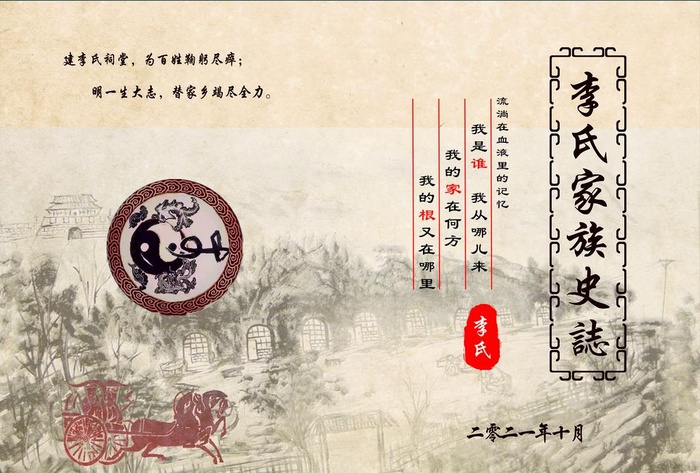 建李氏祠堂，为百姓鞠躬尽瘁；
明一生大志，替家乡竭尽全力。
李氏家族史誌
流淌在血液里的记忆
我是谁 我从哪儿来
我的家在何方
我的根又在哪里
李氏
二零二一年十月